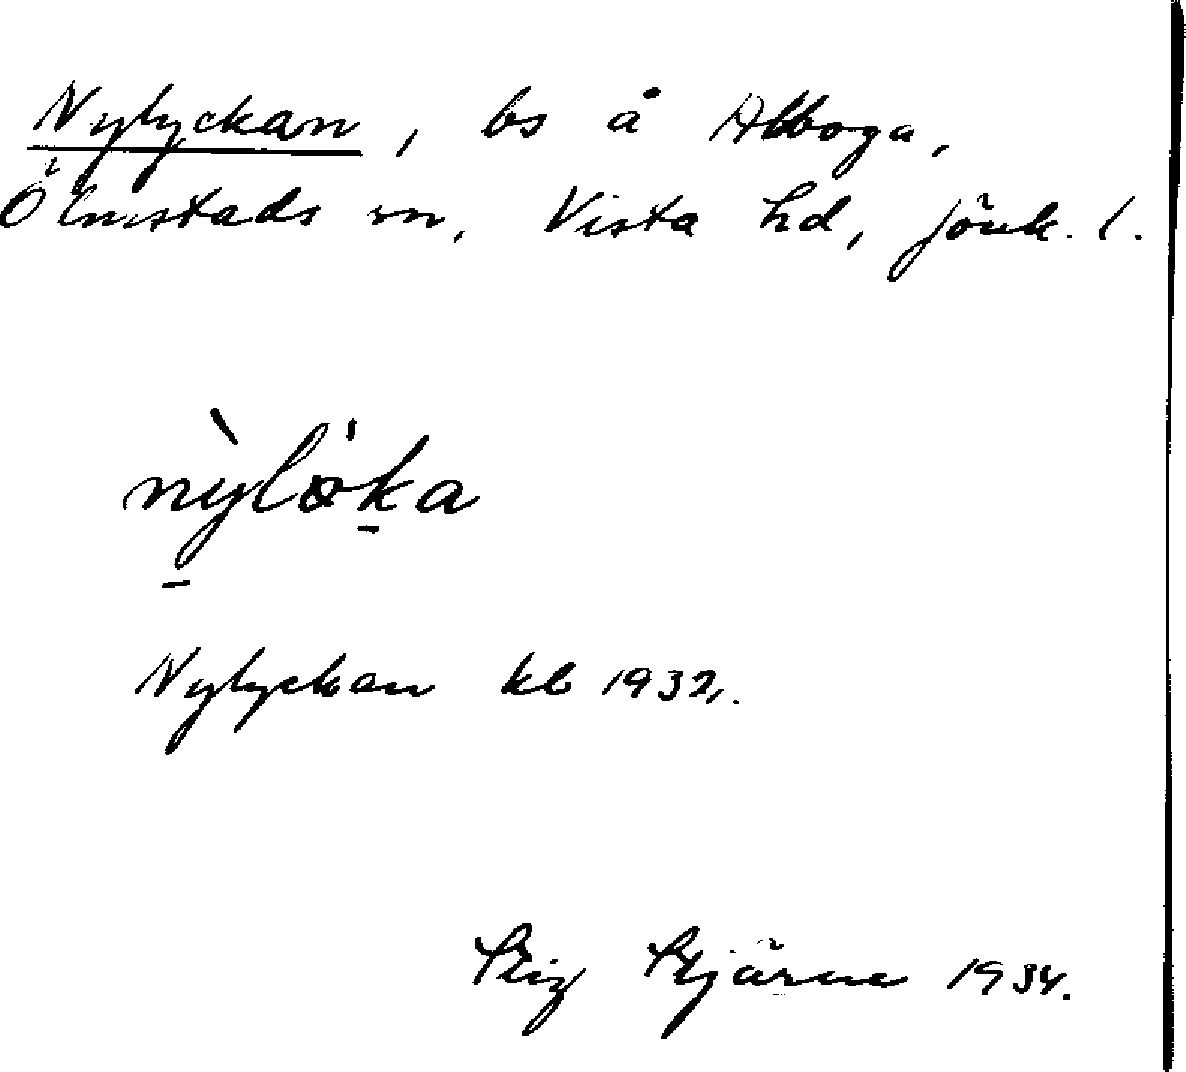 Nylyckan, bs å Abboga,
Ölmstads sn, Vista hd, Jönk. l.
nỳlöka
Nylyckan kb 1932.
Stig Stjärne 1934.